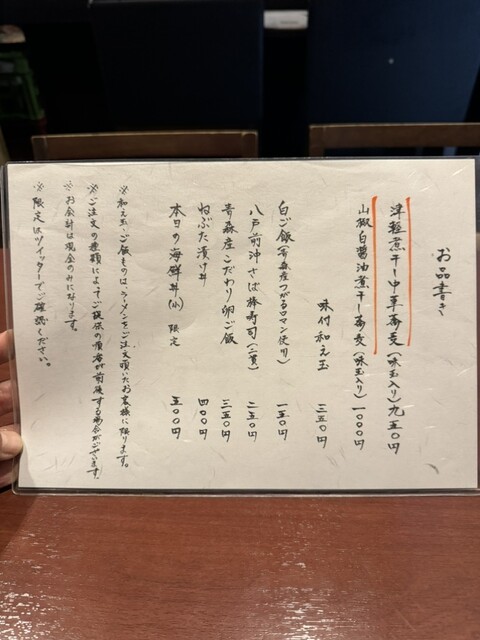 お品書き
津軽煮干し中華蕎麦(味玉入り) 九五〇円
山椒白醤油煮干し蕎麦(味玉入り) 一〇〇〇円
味付和え玉 三五〇円
白ご飯(青森産つがるロマン使用) 一五〇円
八戸前沖さば棒寿司(二貫) 二五〇円
青森産こだわり卵ご飯 三五〇円
ねぶた漬け丼 四〇〇円
本日の海鮮丼(小) 限定 五〇〇円
※和え玉・ご飯ものは、ラーメンをご注文頂いたお客様に限ります。
※ご注文の種類によってご提供の順番が前後する場合がございます。
※お会計は現金のみになります。
※限定はツイッターでご確認ください。